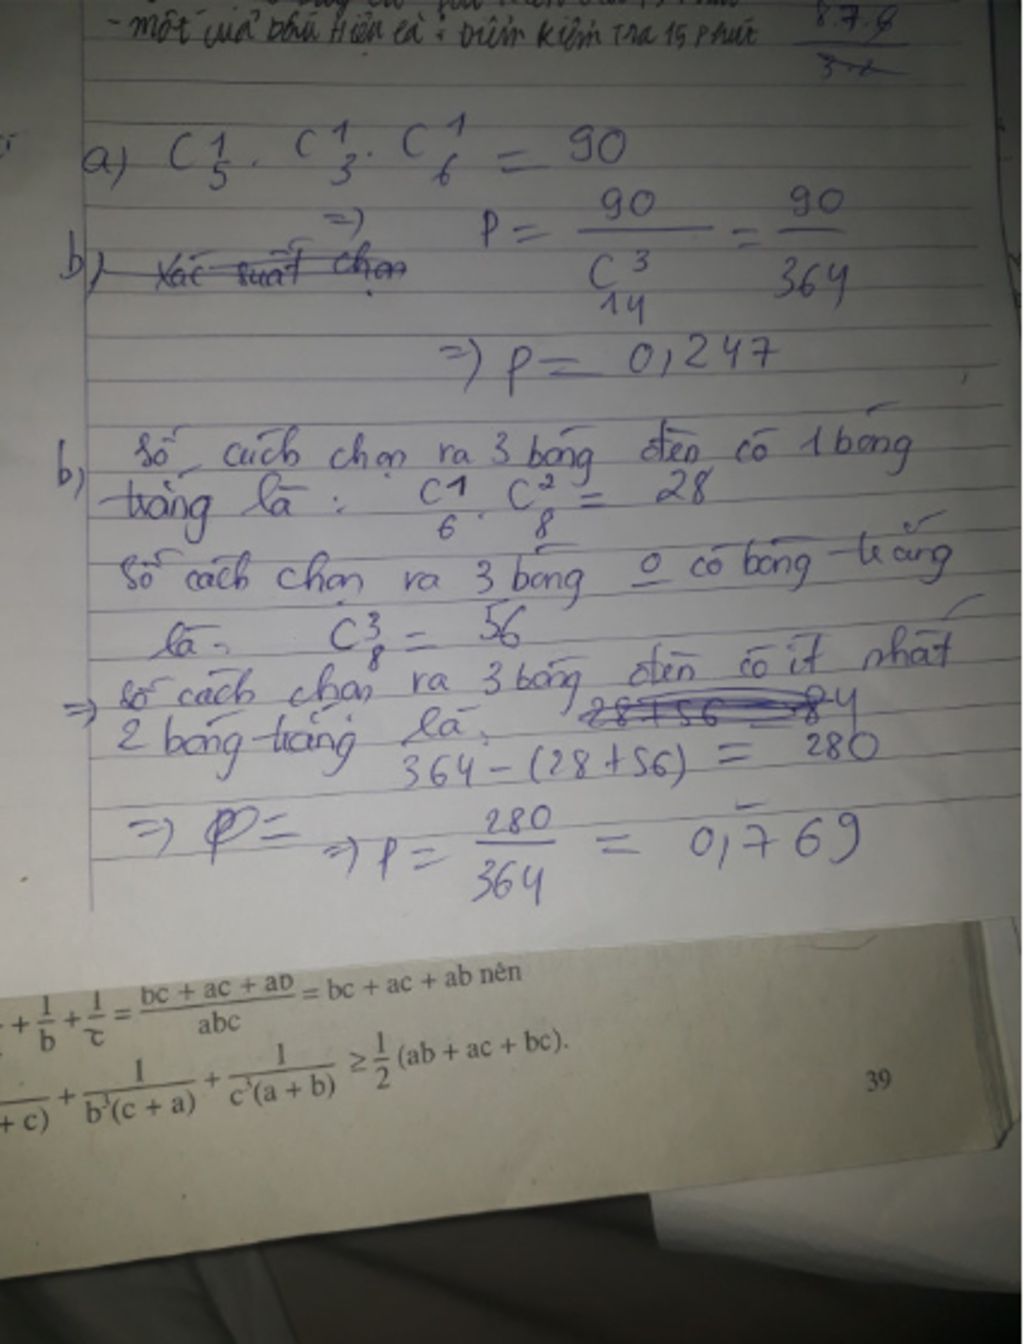 - một của dấu Hiệu là : Điểm kiểm tra 15 phút
a) C^1_5 . C^1_3 . C^1_6 = 90
=> P = 90/C^3_14 = 90/364
b) Xác suất chọn
=> P = 0,247
b) Số cách chọn ra 3 bóng đèn có 1 bóng
trắng là : C^1_6 . C^2_8 = 28
Số cách chọn ra 3 bóng 0 có bóng trắng
là C^3_8 = 56
=> số cách chọn ra 3 bóng đèn có ít nhất
28+56 = 84
2 bóng trắng là
364 - (28+56) = 280
=> P =
=> P = 280/364 = 0,769
+ 1/b + 1/c = (bc + ac + ab)/abc = bc + ac + ab nên
+ c) + 1/(b³(c + a)) + 1/(c³(a + b)) ≥ 1/2 (ab + ac + bc).
39